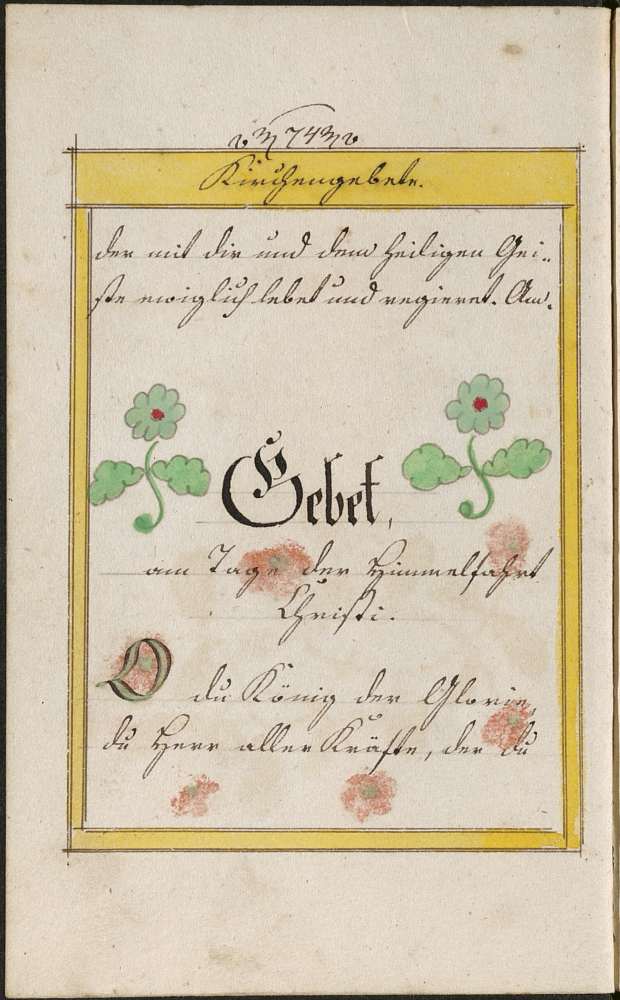 743
Kirchengebete.
der mit dir und dem heiligen Gei-
ste ewiglich lebet und regieret. Am.
Gebet,
am Tage der Himmelfahrt
Christi.
O du König der Glorie,
du Herr aller Kräfte, der du